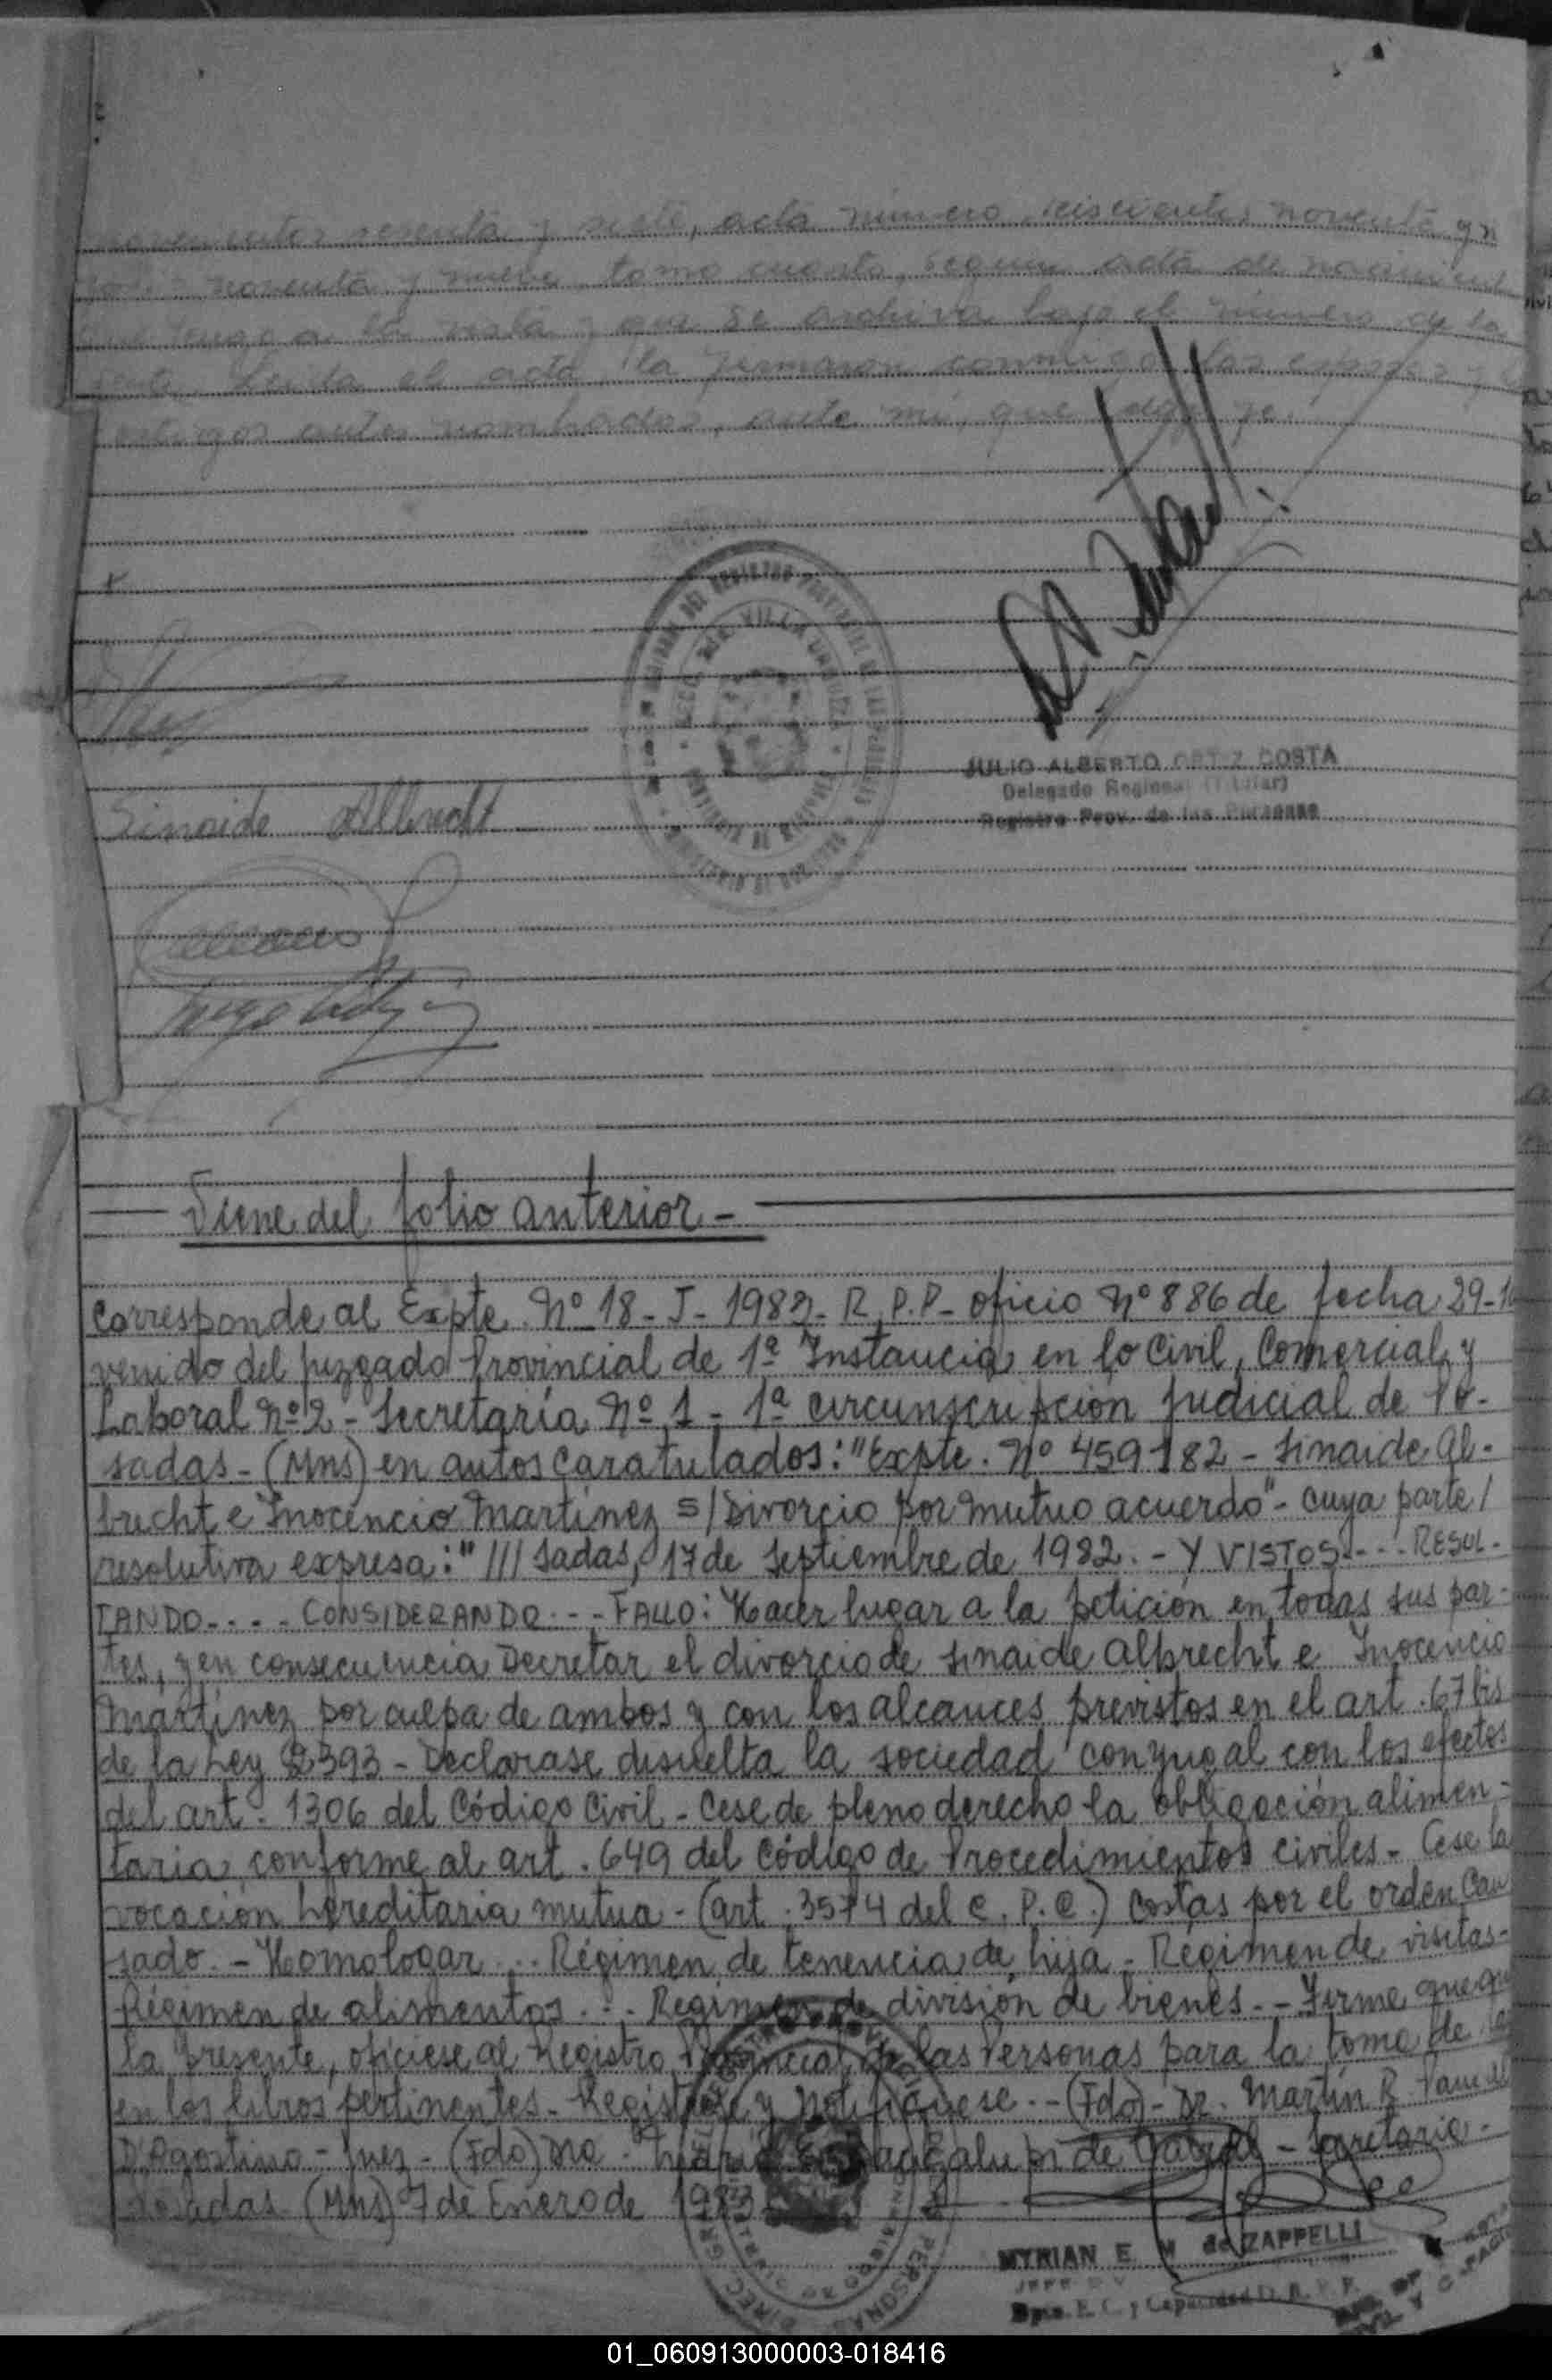 sesenta y siete, acta número seiscientos noventa y n
noventa y nueve tomo cuarto, según acta de nacimient
tengo a la vista y que se archiva bajo el número de la
Leída el acta, la firmaron conmigo los esposos y
testigos antes nombrados, ante mí, que doy fe.
JULIO ALBERTO ORTIZ COSTA
Delegado Regional (Titular)
Registro Prov. de las Personas
Sinaide Albrecht
Viene del folio anterior -
Corresponde al Expte. Nº 18 - J - 1982 - R.P.P - oficio Nº 886 de fecha 29-1
venido del Juzgado Provincial de 1ª Instancia en lo Civil, Comercial y
Laboral Nº 2 - Secretaría Nº 1 - 1ª circunscripción Judicial de Po-
sadas - (Mns) en autos Caratulados: "Expte. Nº 459182 - Sinaide Al-
brecht e Inocencio Martínez s/ Divorcio por mutuo acuerdo" - cuya parte /
resolutiva expresa: " /// sadas, 17 de Septiembre de 1982. - Y VISTOS - - - RESUL-
TANDO - - - - CONSIDERANDO - - - FALLO: Hacer lugar a la petición en todas sus par-
tes, y en consecuencia Decretar el divorcio de Sinaide Albrecht e Inocencio
Martínez por culpa de ambos y con los alcances previstos en el art. 67 bis
de la Ley 2393 - Declarase disuelta la sociedad conyugal con los efectos
del art. 1306 del Código Civil - Cese de pleno derecho la obligación alimen-
taria conforme al art. 649 del Código de Procedimientos civiles - Cese la
vocación hereditaria mutua - (art. 3574 del C.P.C.) Costas por el orden Cau
sado. - Homologar ... Régimen de tenencia de hija - Régimen de visitas -
Régimen de alimentos ... Regimen de división de bienes. - Firme que qu
la presente, ofíciese al Registro Provincial de las Personas para la toma de
en los libros pertinentes - Regístrese y notifíquese. - (Fdo) - Dr. Martín R.
D'Agostino - Juez - (Fdo) Dra. de - Secretaria -
Posadas (Mns) 7 de Enero de 1983
MYRIAN E. M. de ZAPPELLI
Dpto. E. C. y Capacidad D. R. P. P.
01_060913000003-018416